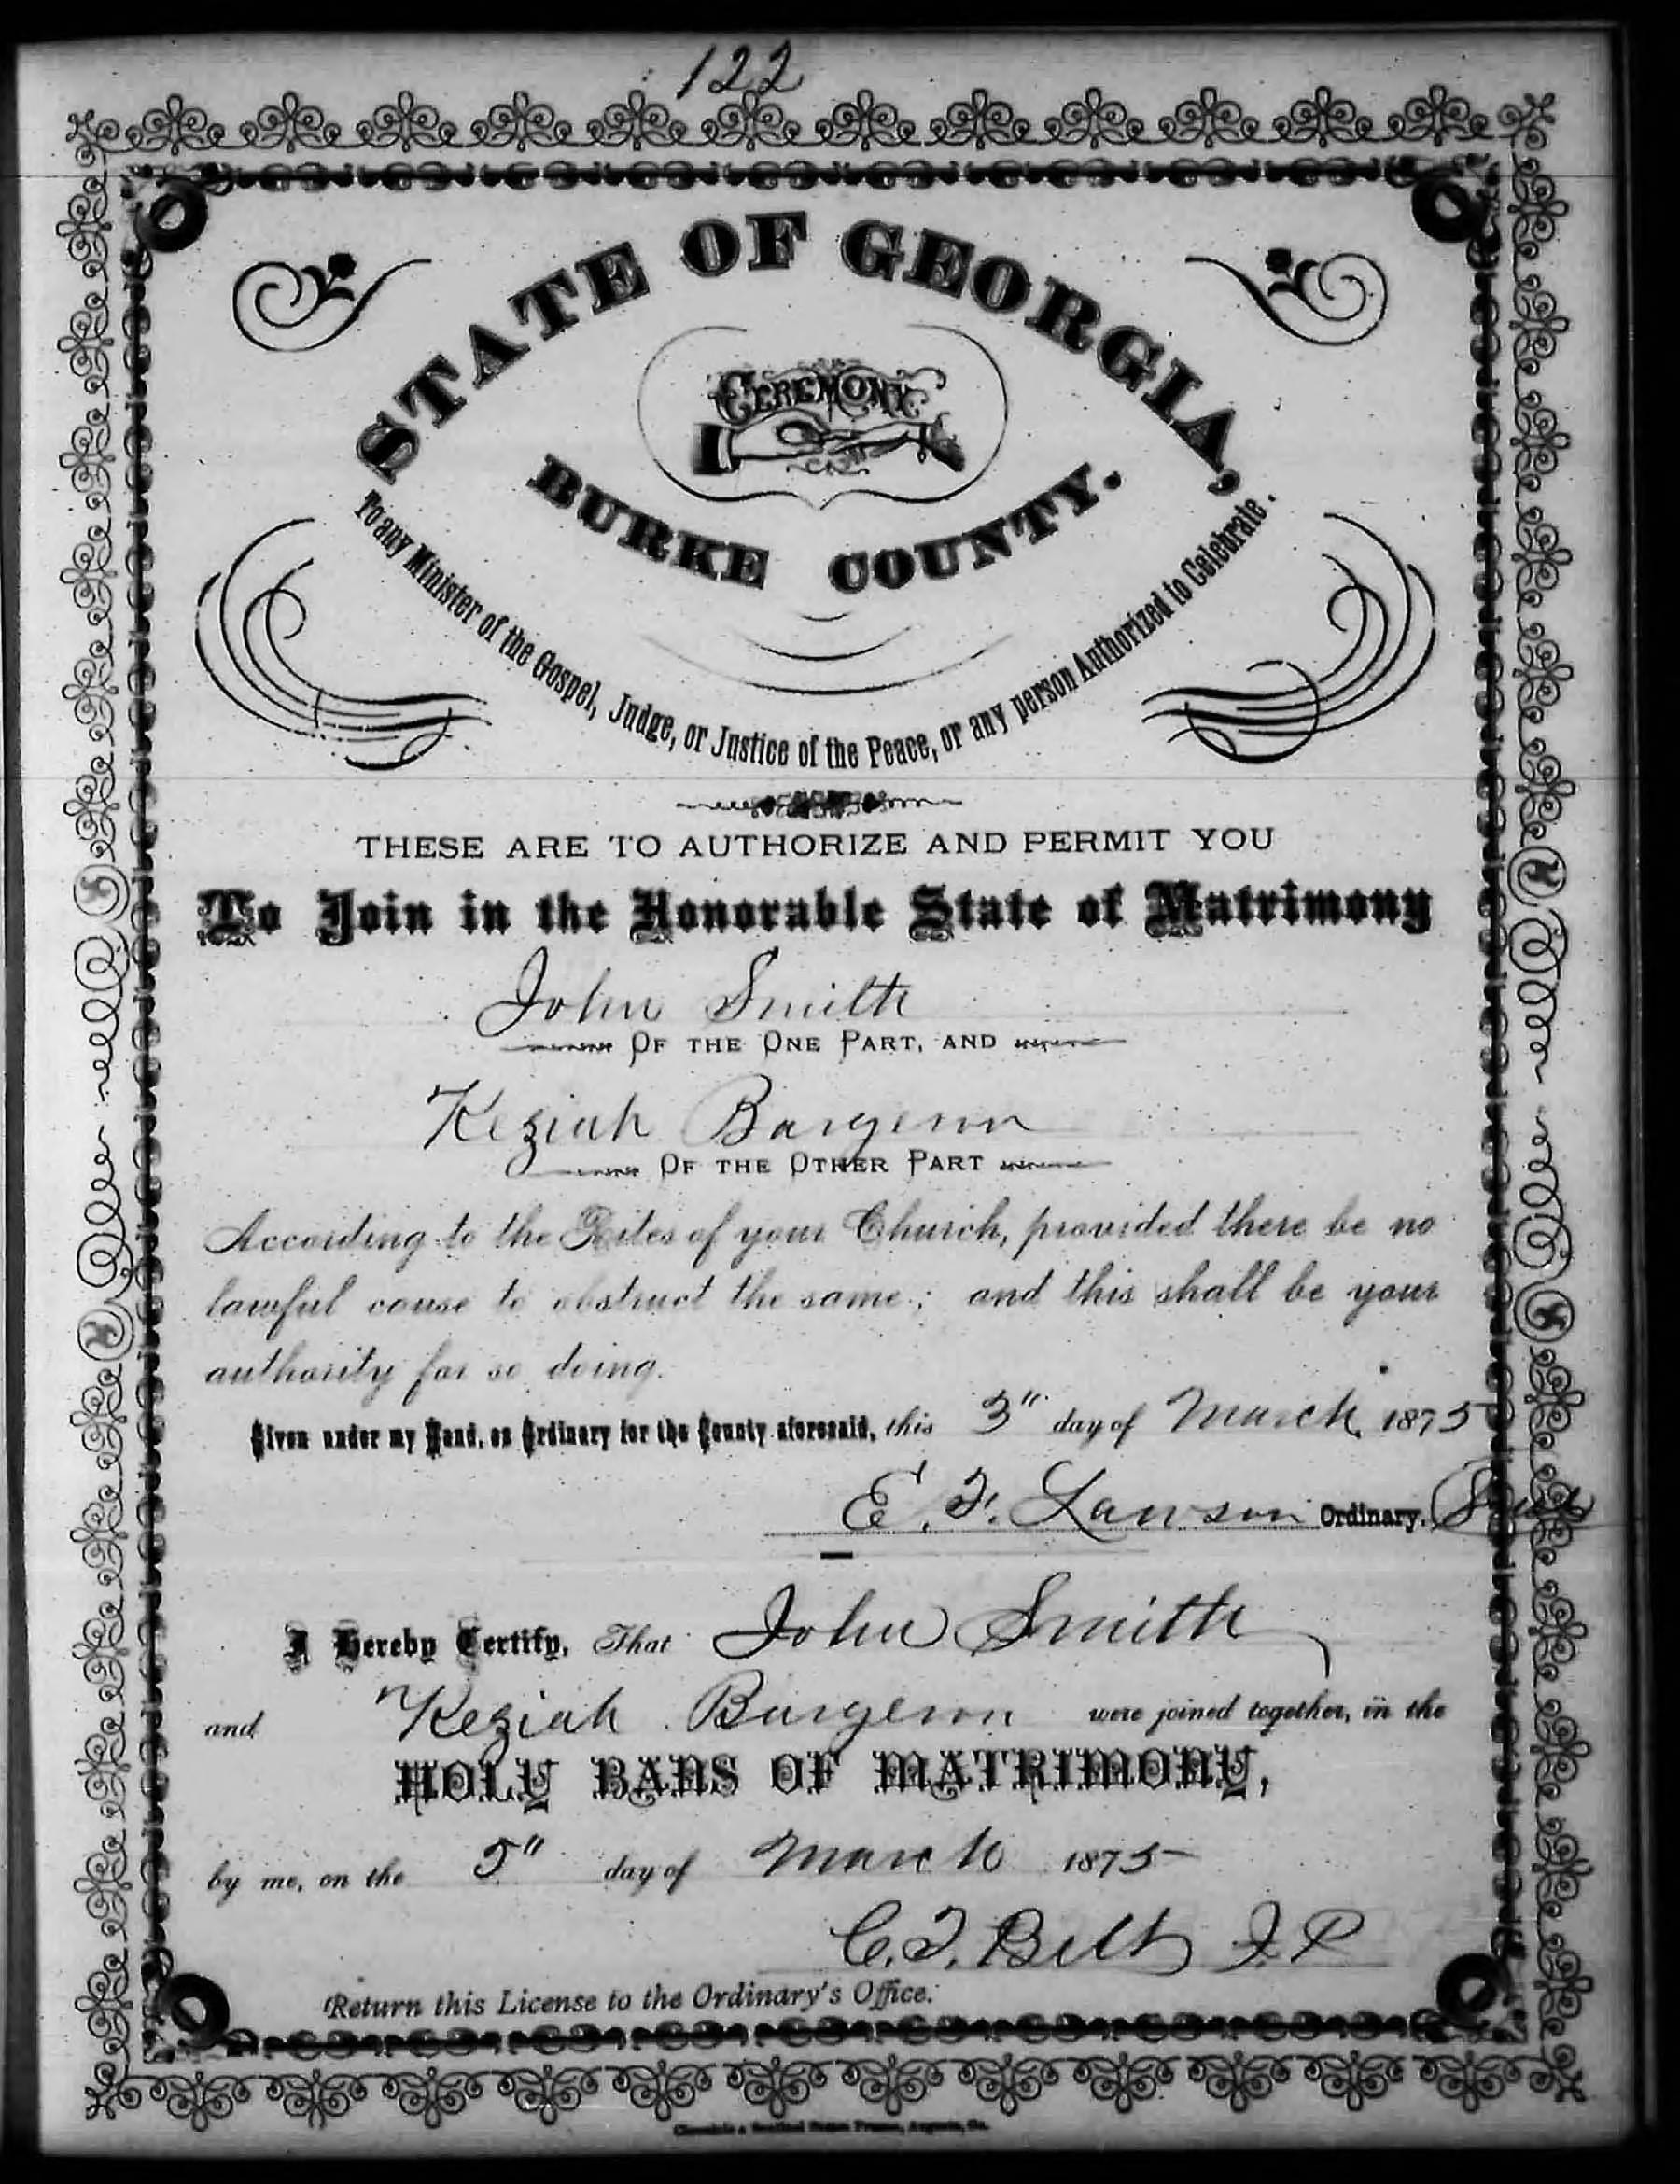 122
STATE OF GEORGIA,
CEREMONY
BURKE COUNTY.
To any Minister of the Gospel, Judge, or Justice of the Peace, or any person Authorized to Celebrate.
THESE ARE TO AUTHORIZE AND PERMIT YOU
To Join in the Honorable State of Matrimony
John Smith
OF THE ONE PART, AND
Keziah Bargeron
OF THE OTHER PART
According to the Rites of your Church, provided there be no
lawful cause to obstruct the same; and this shall be your
authority for so doing.
Given under my Hand, as Ordinary for the County aforesaid, this 3" day of March 1875
E. F. Lawson Ordinary.
I Hereby Certify, That John Smith
and Keziah Bargeron were joined together, in the
HOLY BANS OF MATRIMONY,
by me, on the 5" day of March 1875
C. T. Belt J. P
Return this License to the Ordinary's Office.